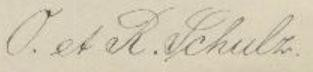 O. et R. Schulz.